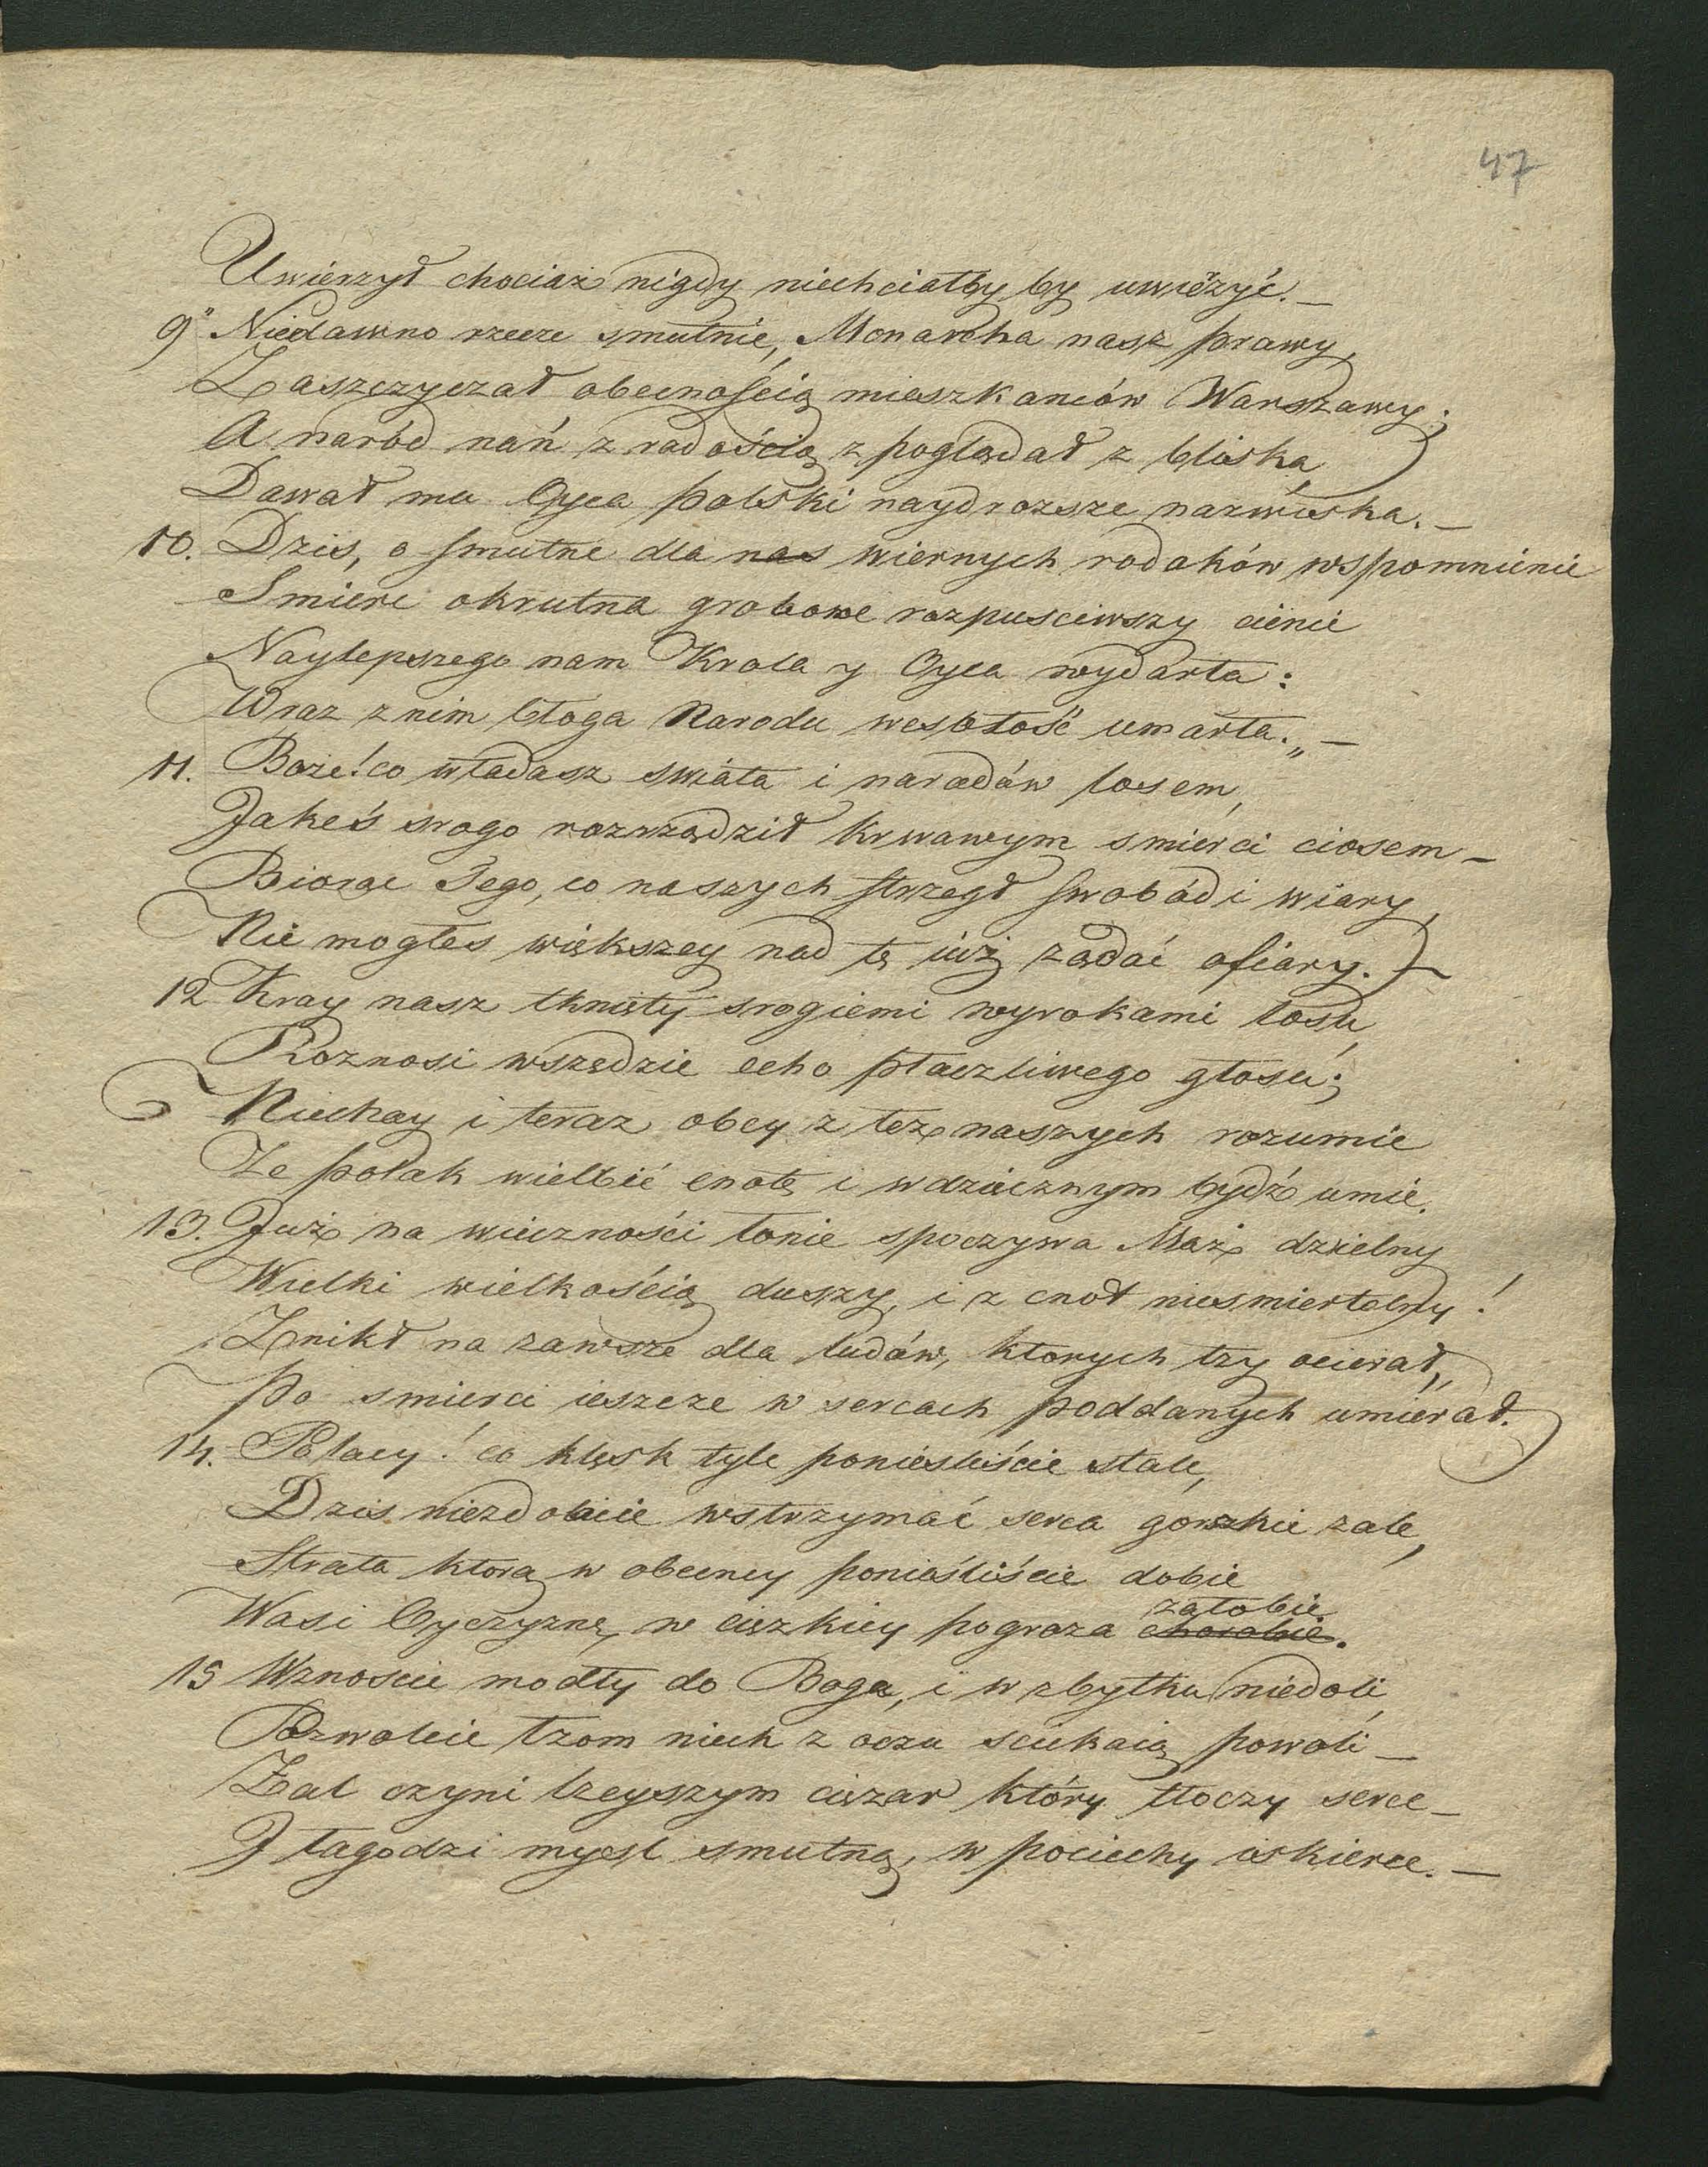 47
Uwierzył chociaż nigdy niechciałby by uwiérzyć. —
9° Niedawno rzecze smutnie, Monarcha nasz prawy,
Zaszczyczał obecnością mieszkanców Warszawy;
A naród nań z radością z poglądał z bliska
Dawał mu Oyca polski naydrozsze nazwiska. —
10. Dzis, o smutne dla nas wiernych rodaków wspomnienie
Smierc okrutna grobowe rozpusciwszy cienie
Naylepszego nam Krola y Oyca wydarła:
Wraz z nim błoga Narodu wesołość umarła. „ —
11. Boże! co władasz swiata i narodów losem,
Jakeś srogo rozrządził krwawym smierci ciosem —
Biorąc Tego, co naszych strzegł swobód i wiary,
Nie mogłes większey nad tę iuż ządać ofiary. —
12 Kray nasz tknięty srogiemi wyrokami losu
Roznosi wszędzie echo płaczliwego głosu;
Niechay i teraz obcy z łez naszych rozumie
Ze polak wielbić cnotę i wdzięcznym bydź umie.
13. Już na wieczności łonie spoczywa Mąż dzielny
Wielki wielkością duszy, i z cnot niesmiertelny!
Znikł na zawsze dla ludów, ktorych łzy ocierał,
Po smierci ieszcze w sercach poddanych umierał.
14. Polacy! co klęsk tyle ponieśliście stale,
Dzis niezdolacie wstrzymać serca gorzkie zale,
Strata ktorą w obecney ponieśliście dobie
Wasi Oyczyznę w cięzkiey pograza żałobie
chorobie.
15 Wznoscie modły do Boga, i w zbytku niedoli
Pozwolcie łzom niech z oczu sciekaią powoli —
Żal czyni lzeyszym cięzar który tłoczy serce —
I łagodzi mysl smutną, w pociechy iskierce. —